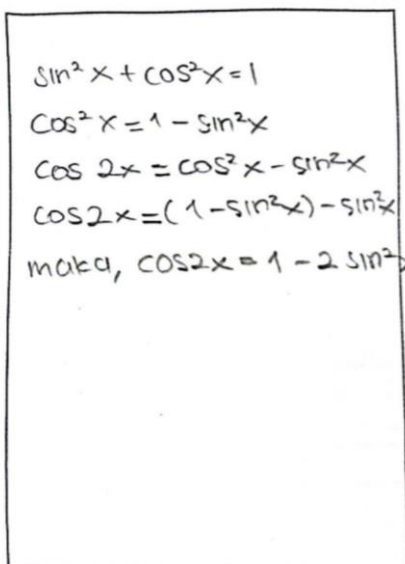 sin² x + cos² x = 1
cos² x = 1 - sin² x
cos 2x = cos² x - sin² x
cos 2x = (1 - sin² x) - sin² x
maka, cos 2x = 1 - 2 sin²